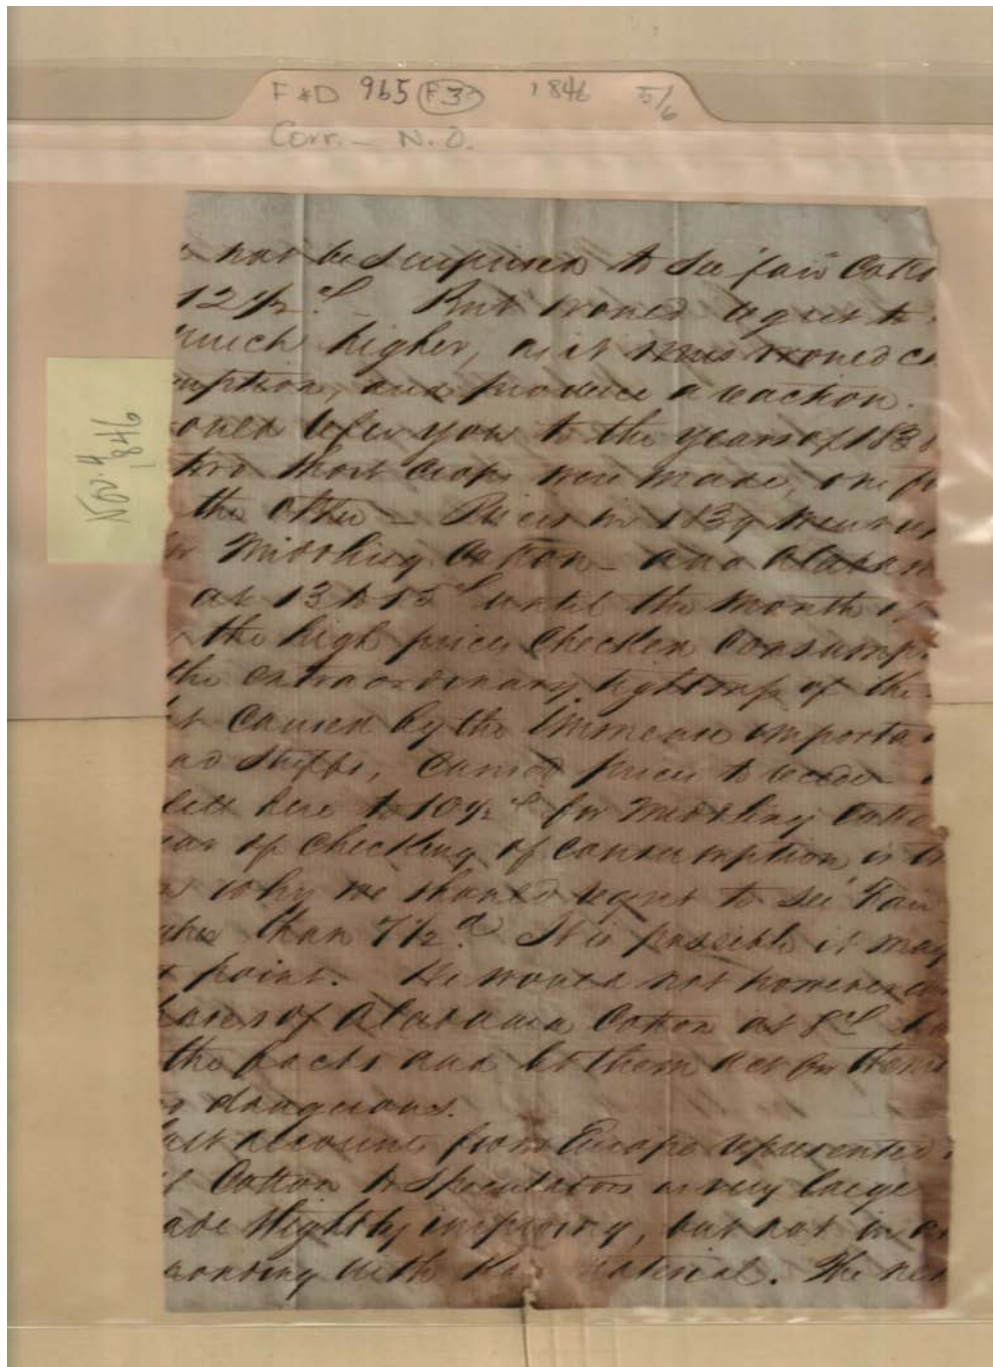 F & D 965 F3 1846 5/6
Corr. - N. O.
Nov 4
1846
not be surprised to see "fair" Cotto
12½ cts. - But would regret to
much higher, as it would c
mption, and produce a reaction.
would refer you to the years of 183
two short crops were made, one
the other - Prices in 1839 were
Middling Cotton - and Alabam
at 13 to 15 cts until the month of
the high prices checked Consump
the extraordinary tightness of the
et caused by the immense importa
ad Stuffs, caused prices to recede
here to 10½ cts for Middling Cotto
ear of checking of consumption is
why we should regret to see "Fair"
gher than 7½ d. It is possible it may
t point. We would not however
ares of Alabama Cotton at 8 d
the facts and let them act for thems
dangerous.
last accounts from Europe represented
of Cotton to Speculators as very large
ade slightly improving, but not in
sponding with the Raw material. The ne